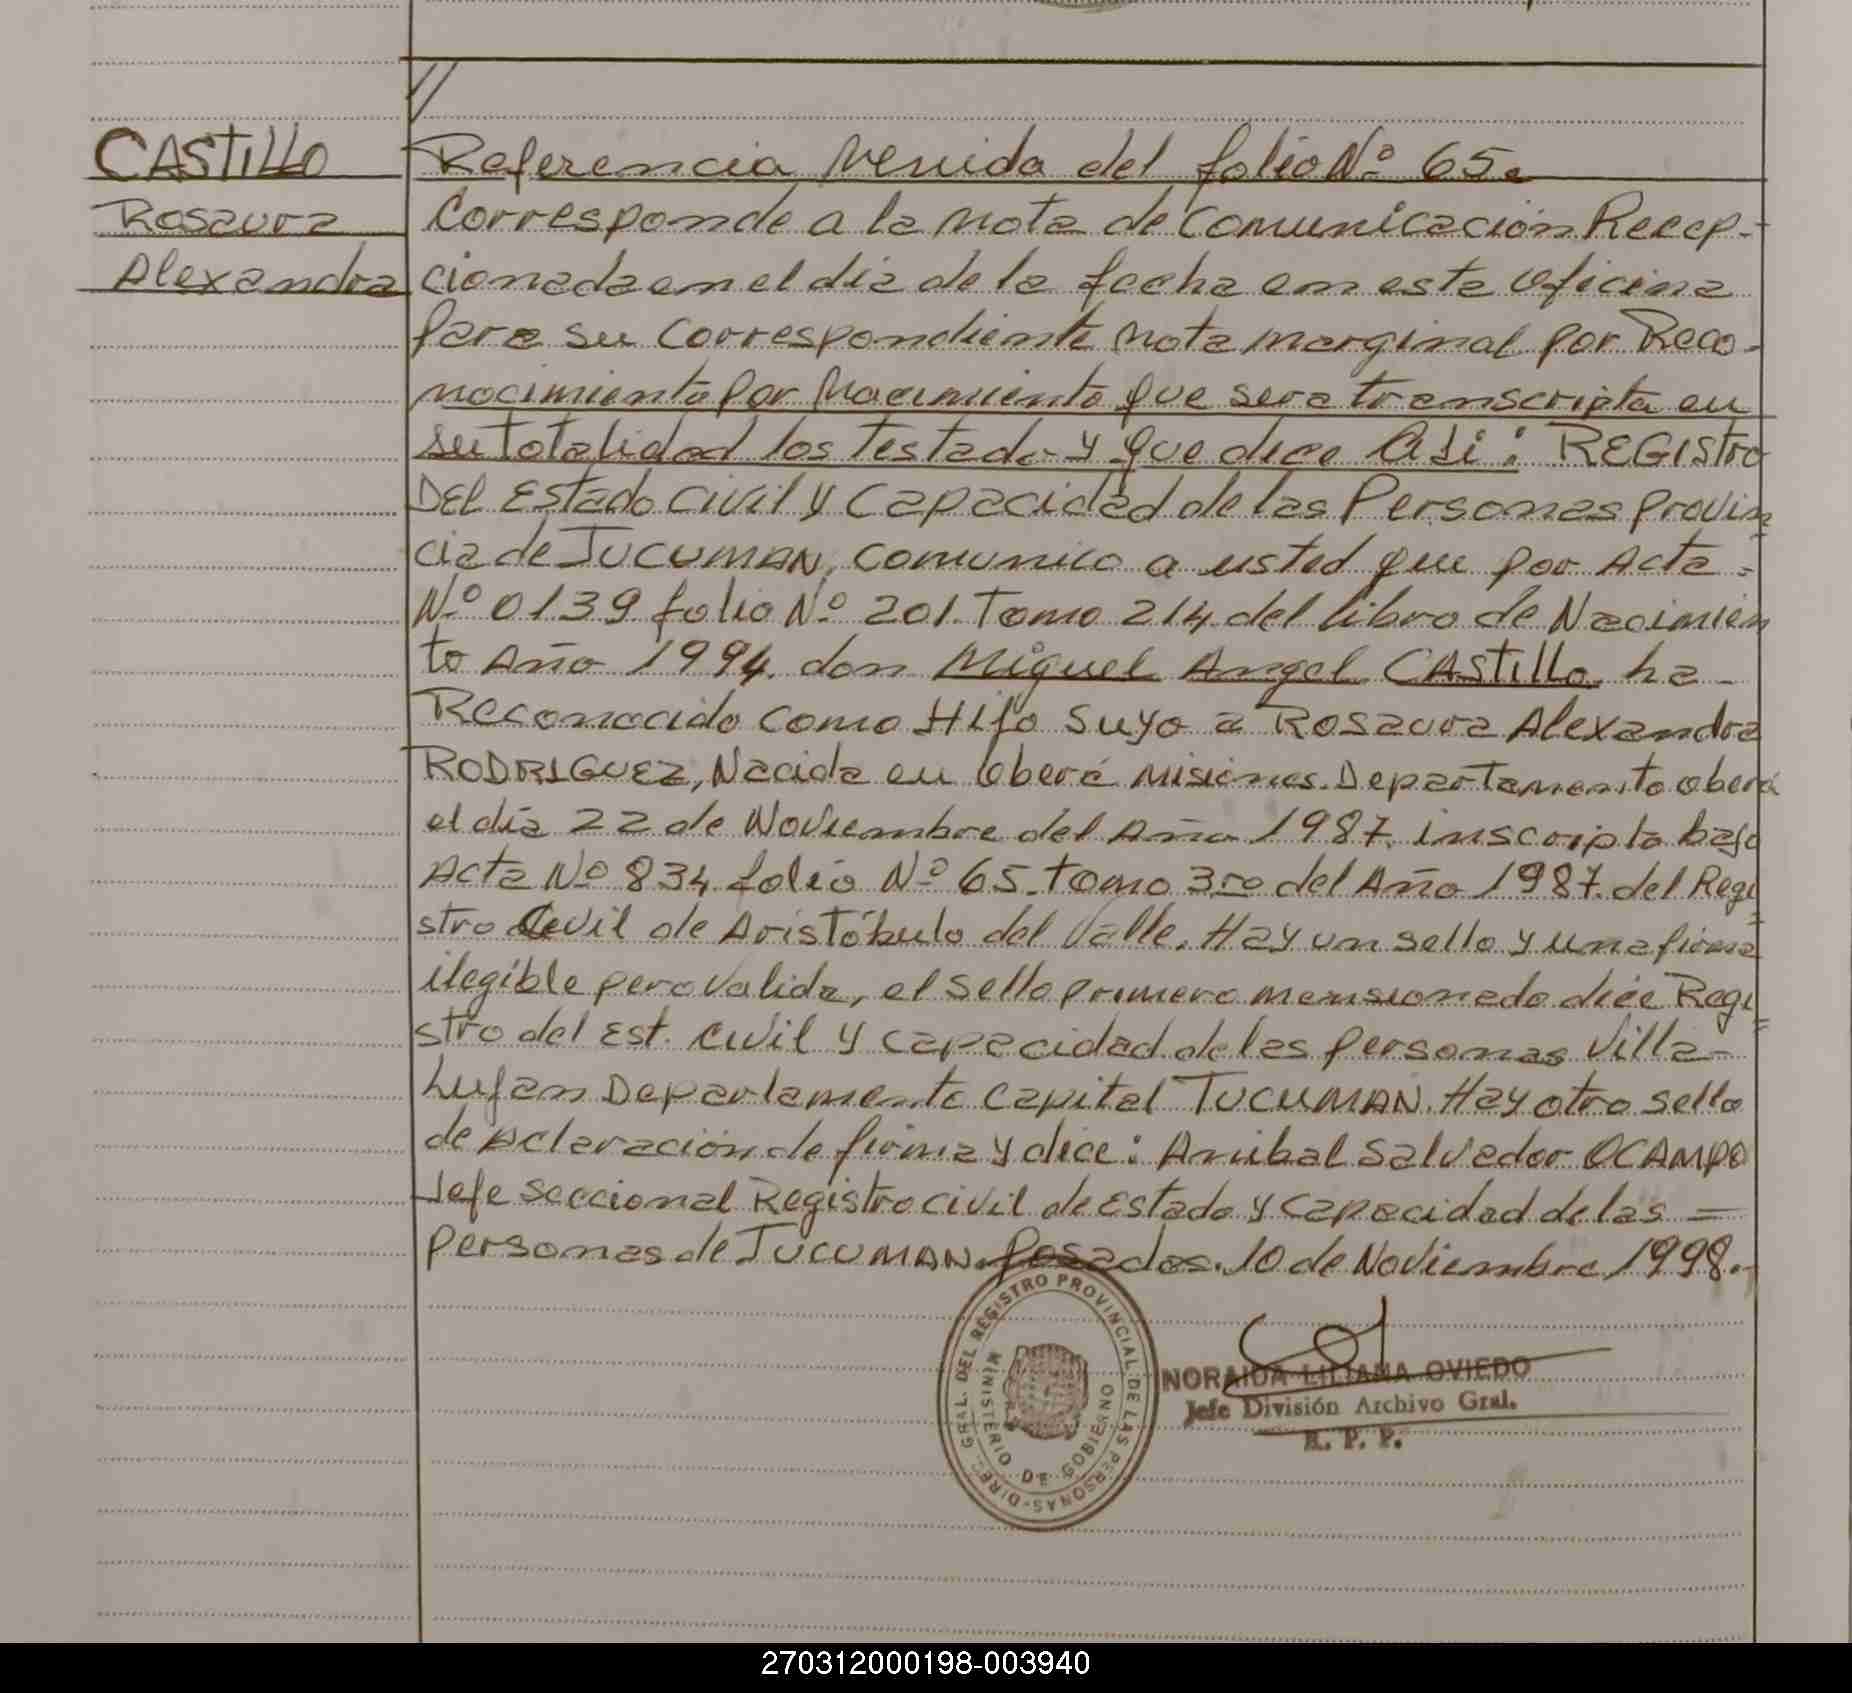 CASTILLO
Rosaura
Alexandra
Referencia Venida del folio Nº 65.
Corresponde a la nota de Comunicación Recep-
cionada en el día de la fecha en esta oficina
para su correspondiente nota marginal por Reco-
nocimiento por Nacimiento que sera transcripta en
su totalidad los testado y que dice Asi: REGISTRO
DEL Estado Civil y Capacidad de las Personas Provin
cia de TUCUMAN, comunico a usted que por Acta -
Nº 0139 folio Nº 201. Tomo 214 del libro de Nacimien
to Año 1994. don Miguel Angel CASTILLO. ha -
Reconocido como Hijo suyo a ROSAURA Alexandra
RODRIGUEZ, Nacida en Oberá Misiones. Departamento Oberá
el día 22 de Noviembre del Año 1987. inscripta bajo
Acta Nº 834 folio Nº 65. tomo 3ro del Año 1987. del Regi
stro Civil de Aristóbulo del Valle. Hay un sello y una firma
ilegible pero valida, el sello primero mensionado dice Regi
stro del Est. Civil y capacidad de las personas Villa -
Lujan Departamento Capital TUCUMAN. Hay otro sello
de Aclaración de firma y dice: Anibal Salvador OCAMPO
Jefe Seccional Registro civil de Estado y Capacidad de las =
personas de TUCUMAN. Posadas. 10 de Noviembre 1998.-
DIREC. GRAL. DEL REGISTRO PROVINCIAL DE LAS PERSONAS
MINISTERIO DE GOBIERNO
NORAIDA LILIANA OVIEDO
Jefe División Archivo Gral.
R. P. P.
270312000198-003940